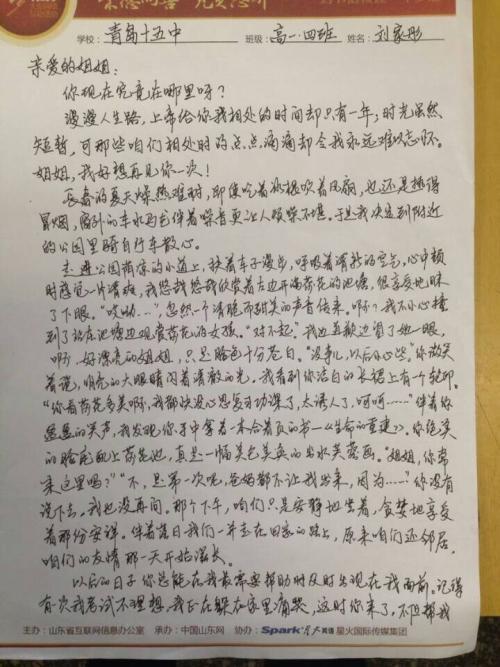 学校：青岛十五中 班级：高一.四班 姓名：刘家彤
亲爱的姐姐：
你现在究竟在哪里呀？
漫漫人生路，上帝给你我相处的时间却只有一年，时光虽然
短暂，可那些咱们相处时的点点滴滴却令我永远难以忘怀。
姐姐，我好想再见你一次！
长春的夏天燥热难耐，即使吃着冰棍吹着风扇，也还是热得
冒烟，窗外的车水马龙伴着噪音更让人烦躁不堪。于是我决定到附近
的公园里骑自行车散心。
走进公园荫凉的小道上，扶着车子漫步，呼吸着清新的空气，心中顿
时感觉一片清爽，我悠哉悠哉欣赏着左边开满荷花的池塘，很享受地眯
了下眼。“哎呦……”忽然一个清脆而甜美的声音传来。啊？我不小心撞
到了站在池塘边观赏荷花的女孩。“对不起”我边道歉边看了她一眼，
啊，好漂亮的姐姐，只是脸色十分苍白。“没事儿，以后小心些”你微笑
着说，明亮的大眼睛闪着清澈的光。我看到你洁白的长裙上有个轮印。
“你看荷花多美啊，我都快没心思复习功课了，太诱人了，呵呵……”伴着你
盈盈的笑声，我发现你手中拿着一本合着页的书—《生命的重建》。你绝美
的脸庞配上荷花池，真是一幅美轮美奂的出水芙蓉画。“姐姐，你常
来这里吗？”“不，是第一次呢，爸妈都不让我出来，因为……”你没有
说下去，我也没再问。那个下午，咱们只是安静地坐着，贪婪地享受
着那份安详。伴着落日我们一并走在回家的路上，原来咱们还邻居，
咱们的友情那一天开始滋长。
以后的日子你总能在我最需要帮助时及时出现在我面前。记得
有次我考试不理想，我正在躲在家里痛哭，这时你来了，不但帮我
主办：山东省互联网信息办公室 承办：中国山东网 协办：Spark 星火英语 星火国际传媒集团